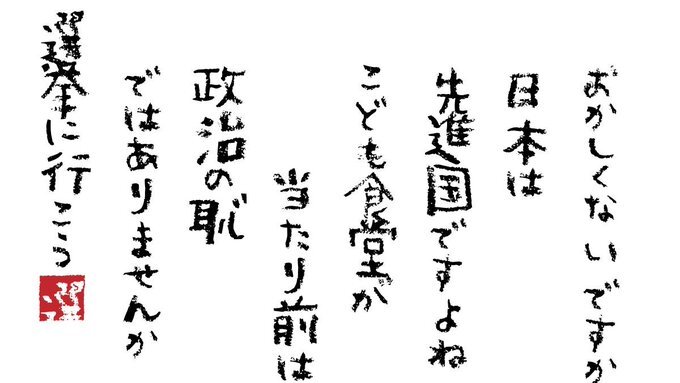 おかしくないですか
日本は
先進国ですよね
こども食堂が
当たり前は
政治の恥
ではありませんか
選挙に行こう
選